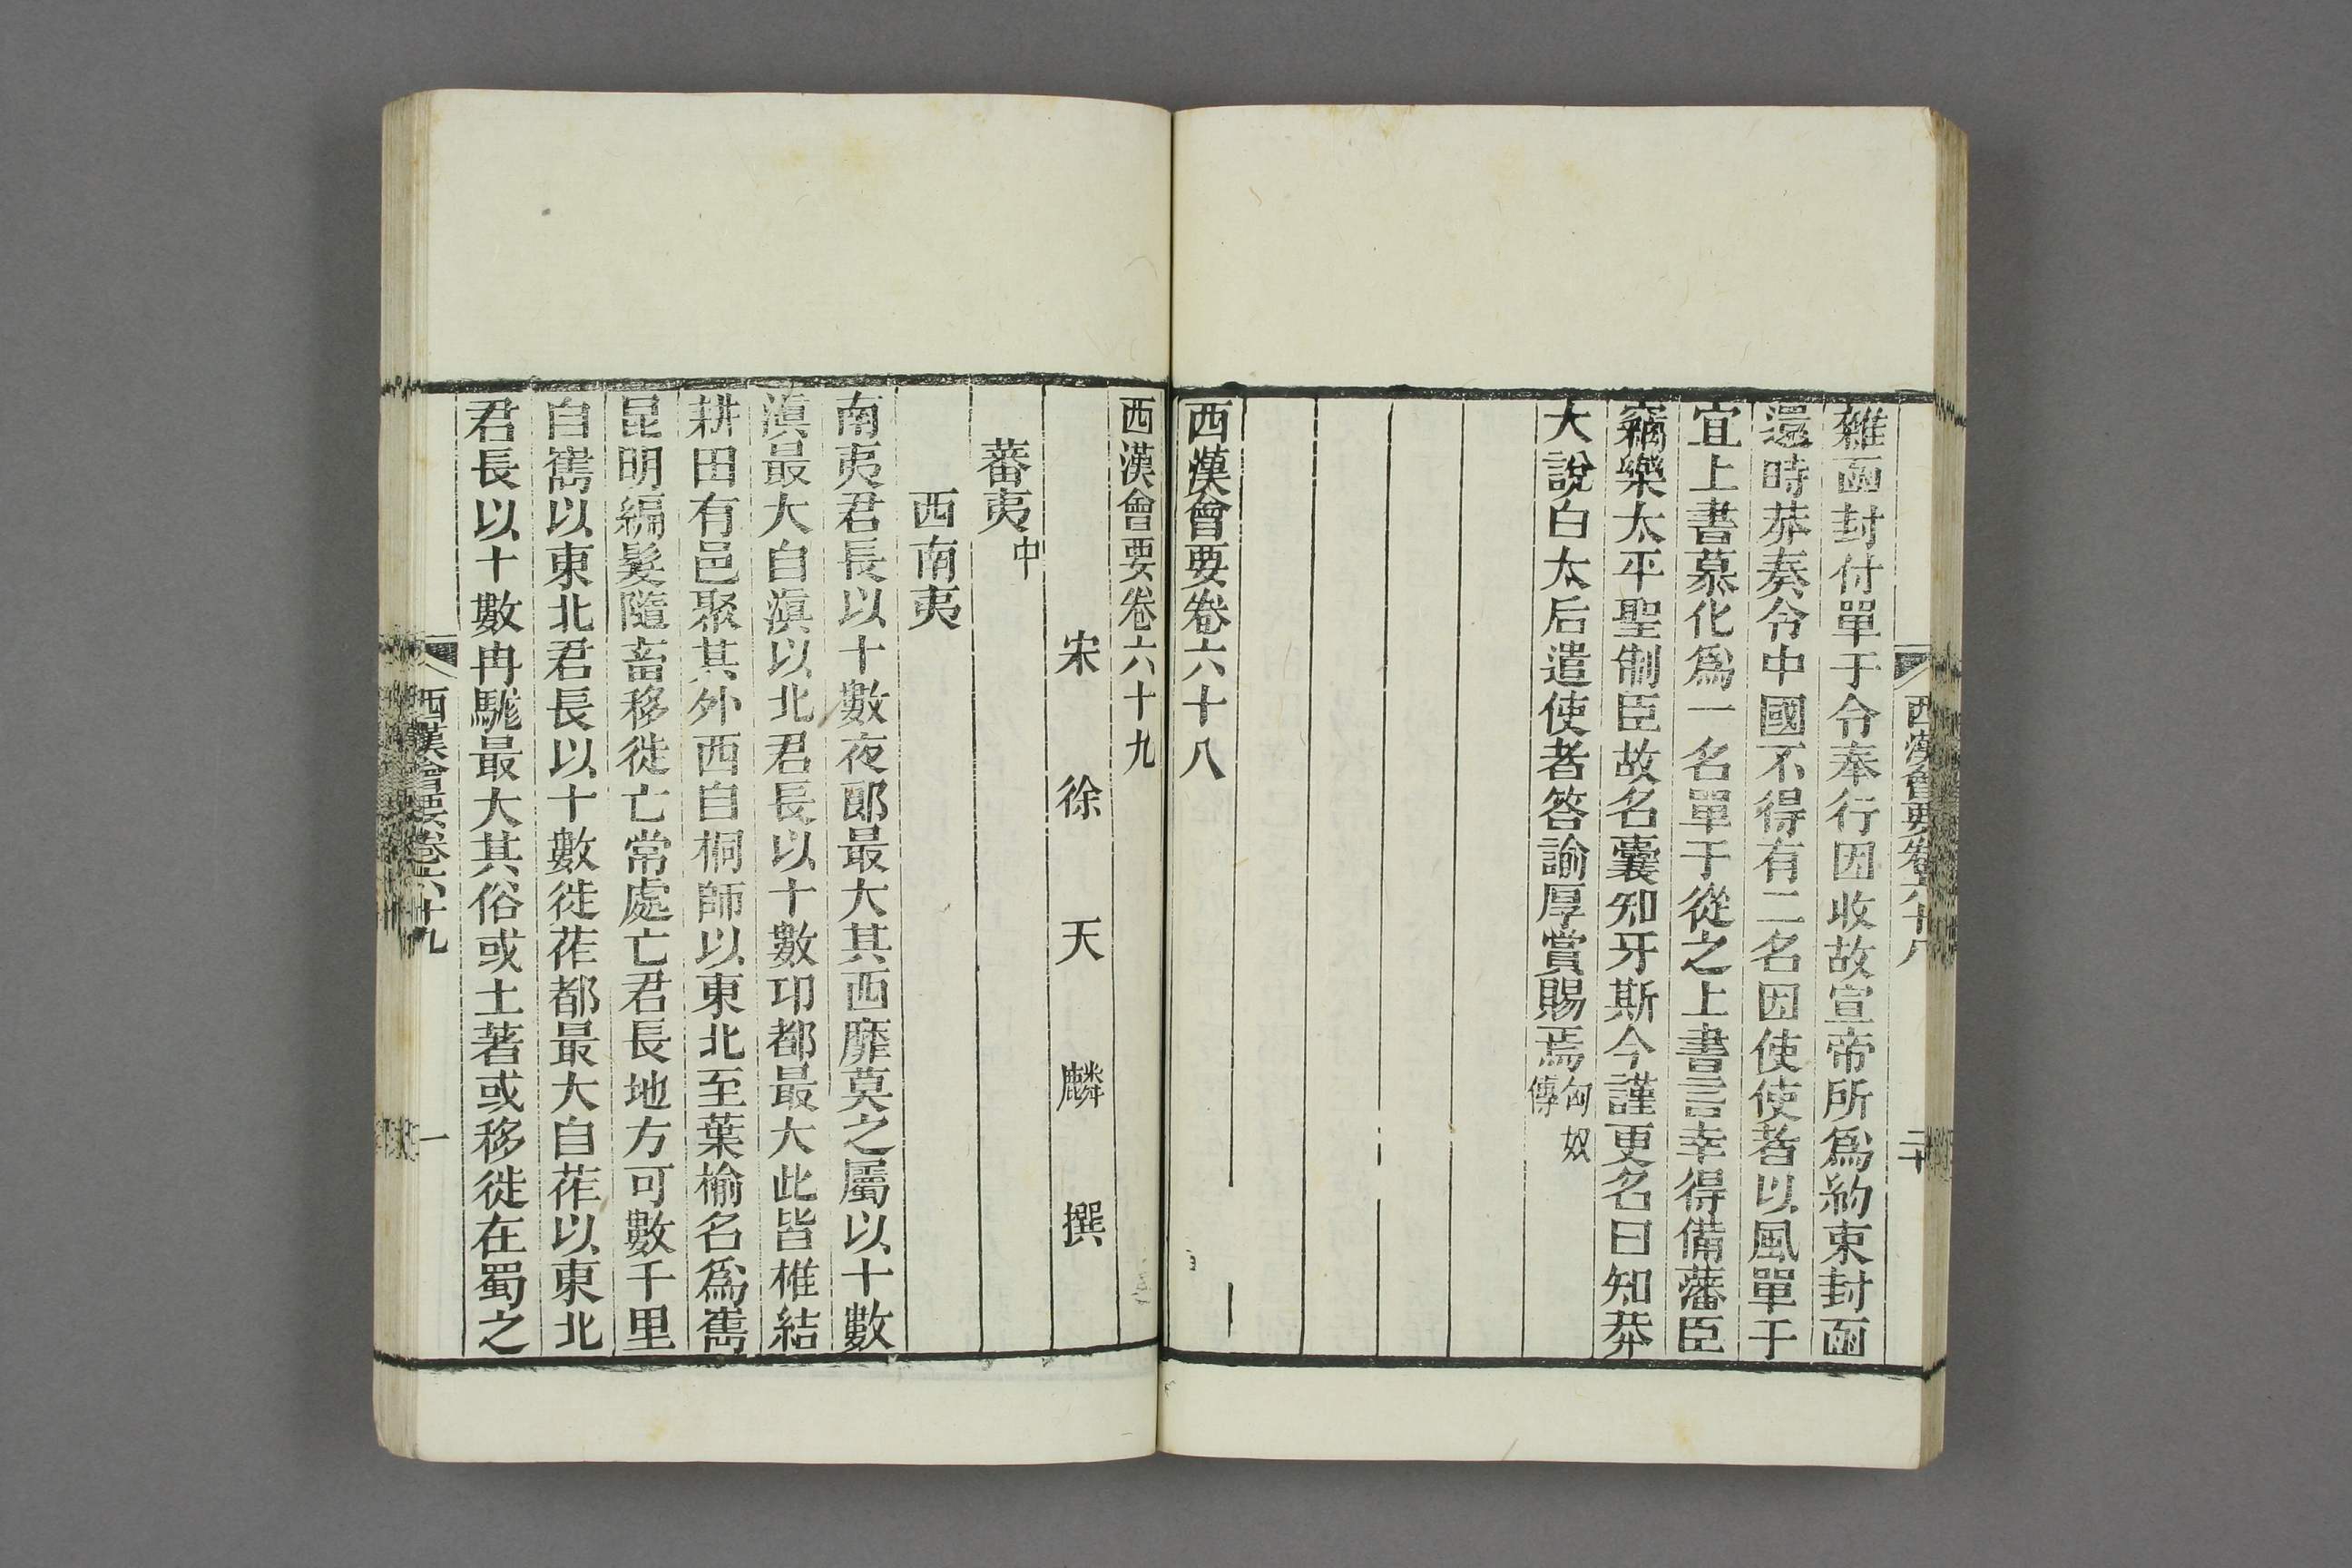 雜函封付單于令奉行因收故宣帝所爲約束封函
還時莽奏令中國不得有二名因使使者以風單于
宜上書慕化爲一名單于從之上書言幸得備藩臣
竊樂太平聖制臣故名囊知牙斯今謹更名曰知莽
大說白太后遣使者答諭厚賞賜焉匈奴傳
西漢會要卷六十八
西漢會要卷六十八
二十
西漢會要卷六十九
宋徐天麟撰
蕃夷中
西南夷
南夷君長以十數夜郎最大其西靡莫之屬以十數
滇最大自滇以北君長以十數卭都最大此皆椎結
耕田有邑聚其外西自桐師以東北至葉榆名爲嶲
昆明編髮隨畜移徙亡常處亡君長地方可數千里
自嶲以東北君長以十數徙莋都最大自莋以東北
君長以十數冉駹最大其俗或土著或移徙在蜀之
西漢會要卷六十九
一